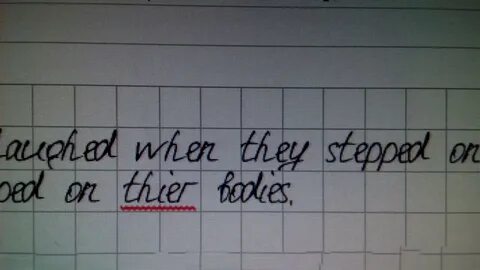 laughed when they stepped on
on thier bodies.